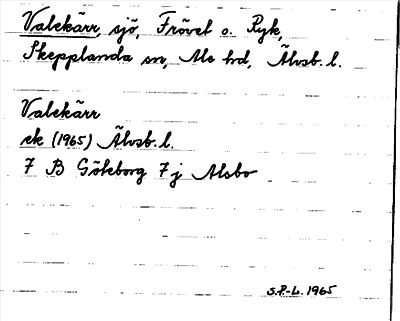 Valekärr, sjö, Frövet o. Ryk,
Skepplanda sn, Ale hd, Älvsb. l.
Valekärr
ek (1965) Älvsb. l.
7 B Göteborg 7 j Alsbo
S.P.-L. 1965